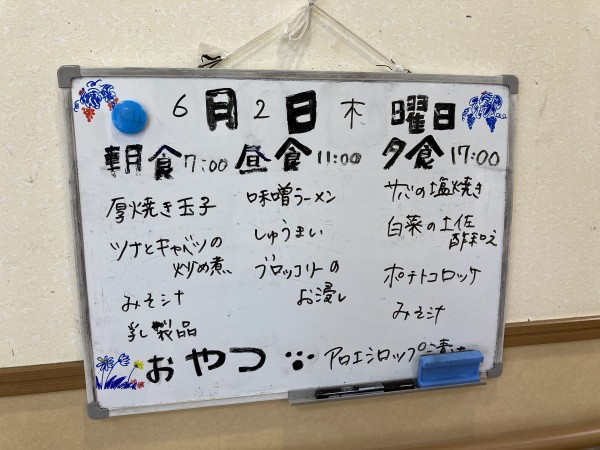 6月2日 木曜日
朝食 7:00
厚焼き玉子
ツナとキャベツの
炒め煮
みそ汁
乳製品
昼食 11:00
味噌ラーメン
しゅうまい
ブロッコリーの
お浸し
夕食 17:00
サバの塩焼き
白菜の土佐
酢和え
ポテトコロッケ
みそ汁
おやつ アロエシロップ漬